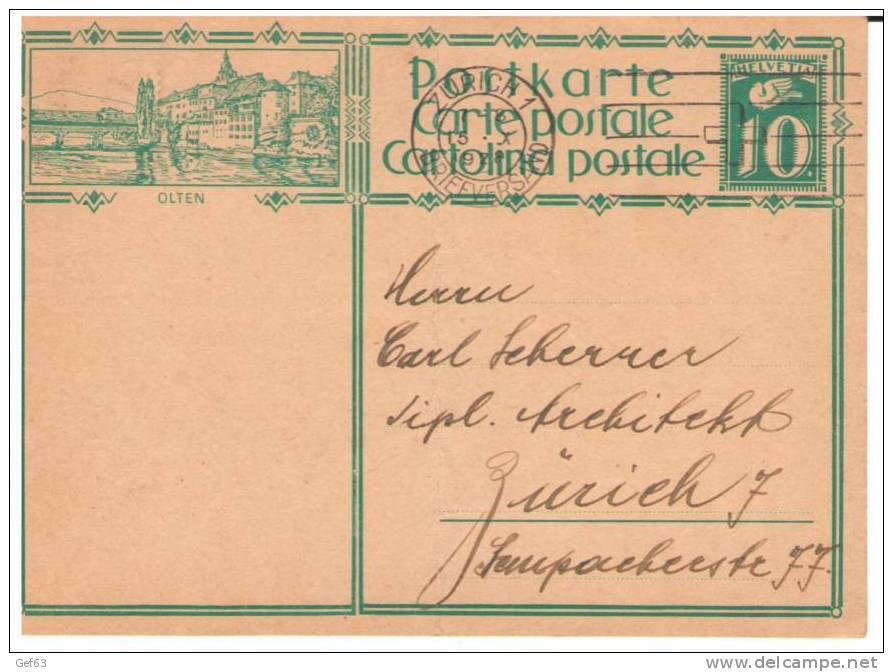 OLTEN
Postkarte
Carte postale
Cartolina postale
ZÜRICH 1
BRIEFVERSAND
HELVETIA
10
Herrn
Carl Scherrer
Dipl. Architekt
Zürich 7
Sempacherstr 77.
Gef63
www.delcampe.net